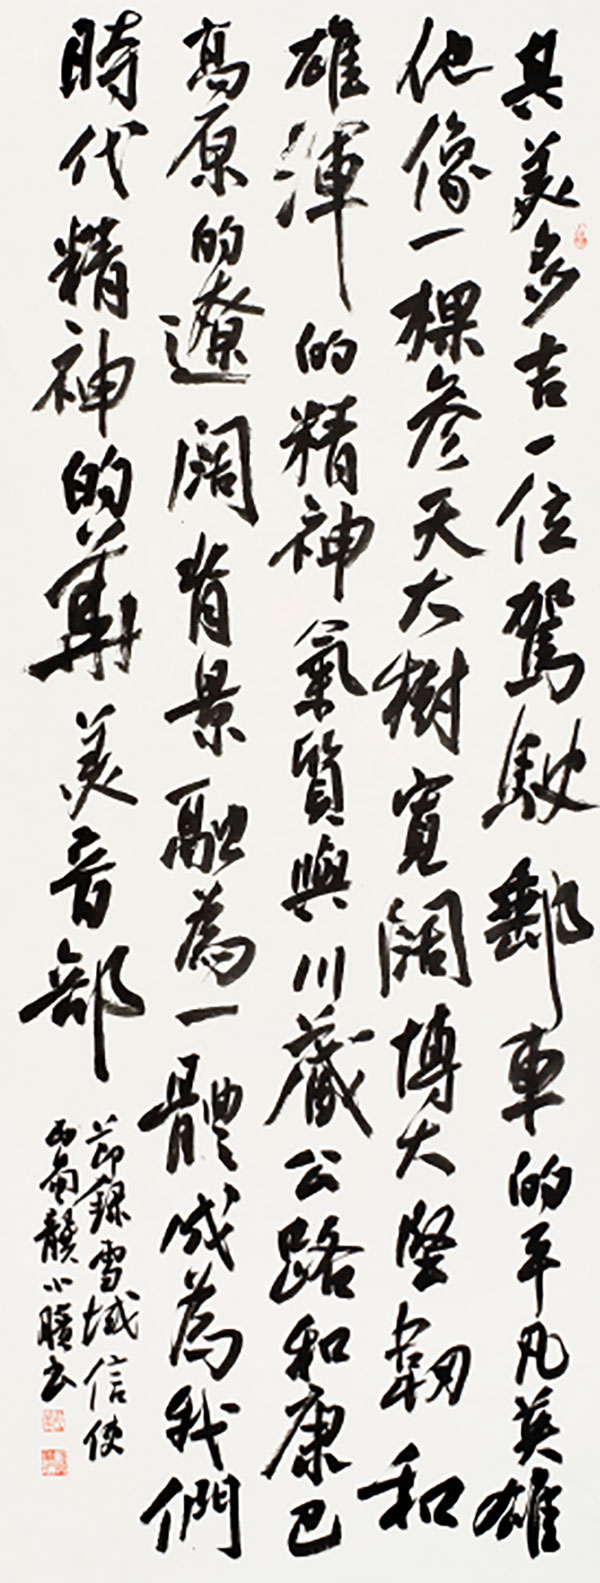 其美多吉一位駕駛郵車的平凡英雄
他像一棵參天大樹寬闊博大堅韌和
雄渾的精神氣質與川藏公路和康巴
高原的遼闊背景融為一體成為我們
時代精神的華美音部
節錄雪域信使
西蜀龔小膑書